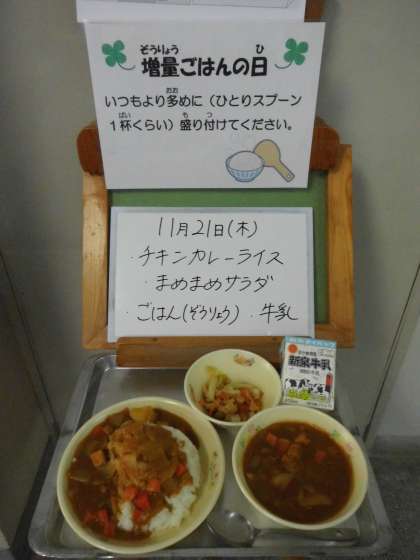 増量ごはんの日
いつもより多めに（ひとりスプーン
１杯くらい）盛り付けてください。
11月21日(木)
・チキンカレーライス
・まめまめサラダ
・ごはん(ぞうりょう) ・牛乳
新泉牛乳